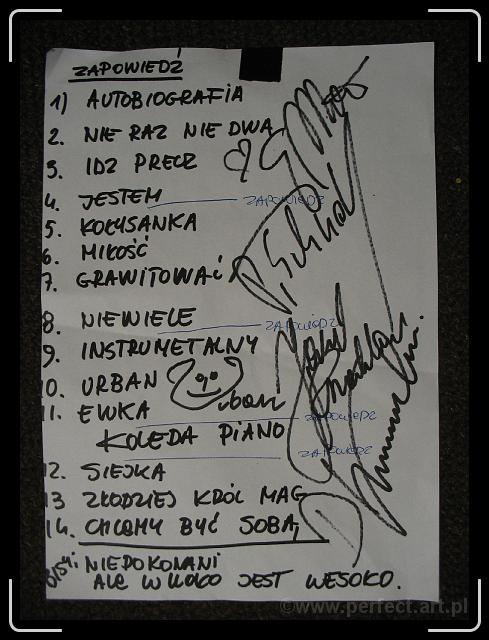 ZAPOWIEDŹ
1) AUTOBIOGRAFIA
2. NIE RAZ NIE DWA
3. IDZ PRECZ
4. JESTEM ZAPOWIEDZ
5. KOŁYSANKA
6. MIŁOŚĆ
7. GRAWITOWAĆ
8. NIEWIELE ZAPOWIEDZ
9. INSTRUMETALNY
10. URBAN Urban
11. EWKA ZAPOWIEDZ
KOLEDA PIANO
ZAPOWIEDZ
12. SIEJKA
13 ZŁODZIEJ KRÓL MAG
14. CHCEMY BYĆ SOBĄ
BISY: NIEPOKONANI
ALE W KOŁO JEST WESOŁO.
©www.perfect.art.pl